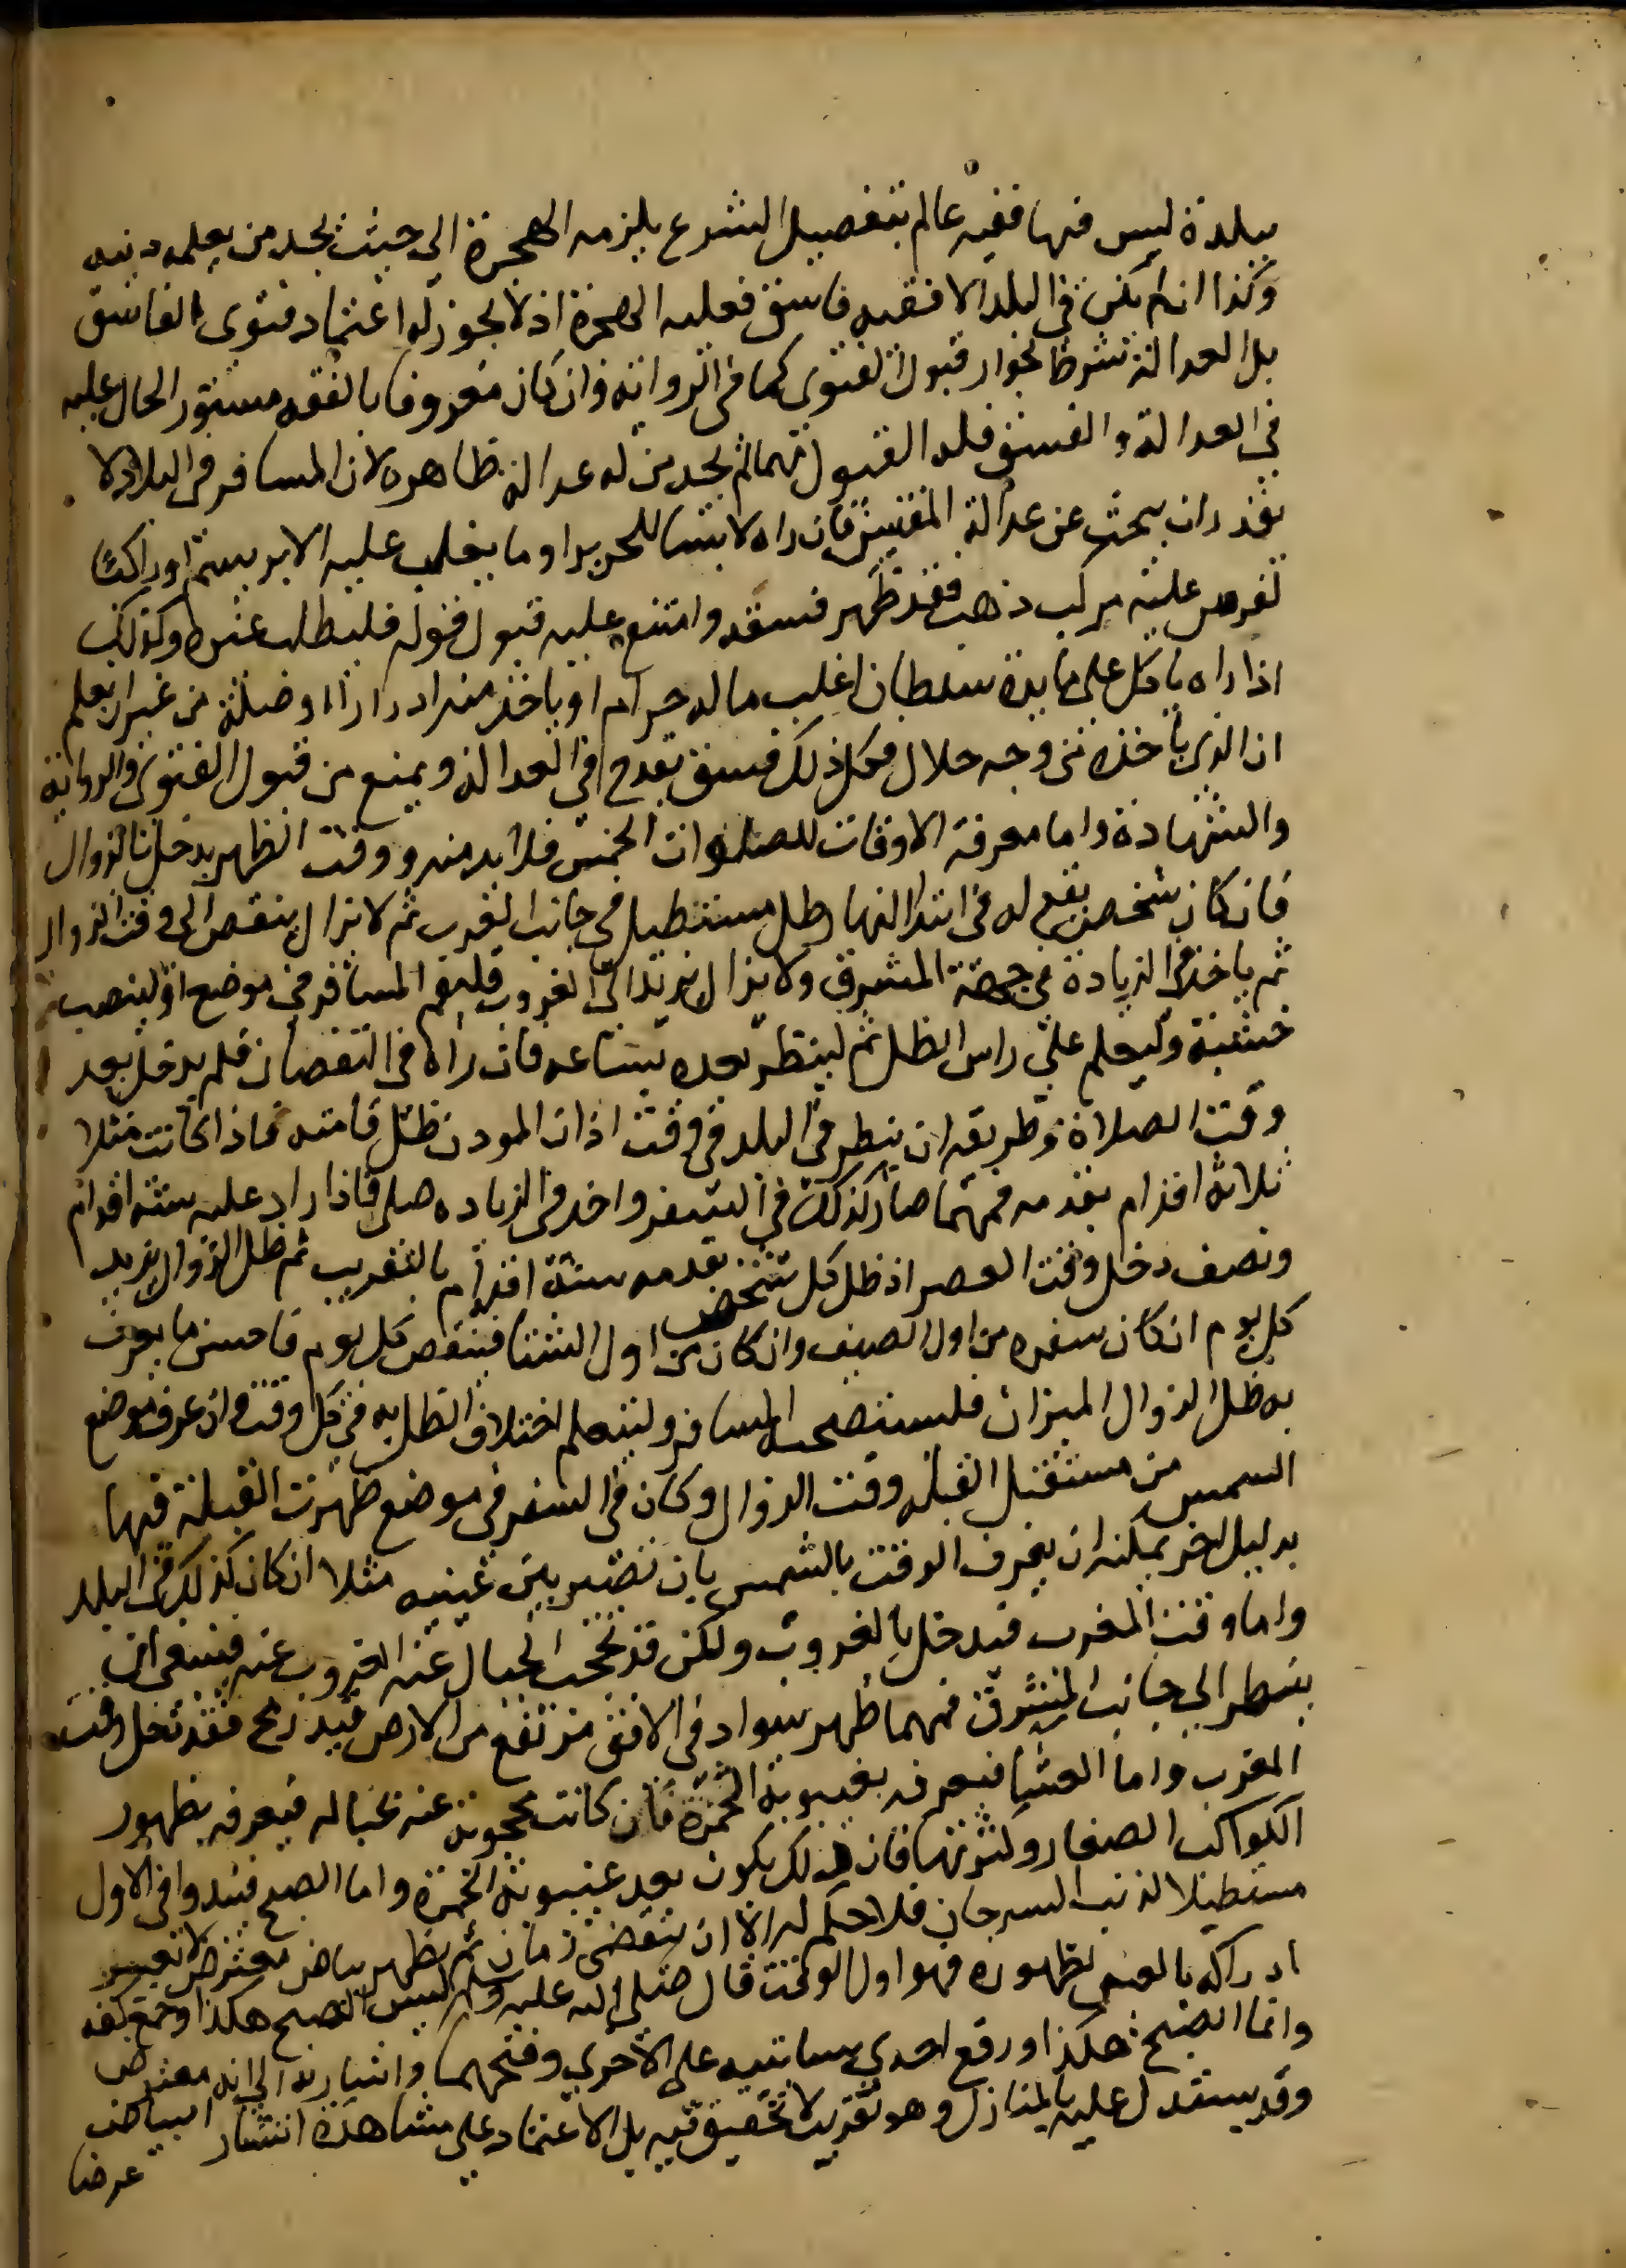 ببلدة ليس فيها فقيه عالم بتفصيل الشرع يلزمه الهجرة الى حيث يجد من يعلمه دينه
وكذا ان لم يكن في البلد الا فقيه فاسق فعليه الهجرة اذ لا يجوز له اعتماد فتوى الفاسق
بل العدالة شرط لجواز قبول الفتوى كما في الرواية وان كان معروفا بالفقه مستور الحال عليه
في العدالة والفسق فله القبول مهما لم يجد من له عدالة ظاهره لان المسافر في البلاد لا
يقدر ان يبحث عن عدالة المفتين فان راه لابسا للحرير او ما يغلب عليه الابريسم او راكبا
لفرس عليه مركب ذهب فقد ظهر فسقه وامتنع عليه قبول قوله فليطلب غيره وكذلك
اذا راه ياكل على مايدة سلطان اغلب ماله حرام او ياخذ منه ادرارا او صلة من غير ان يعلم
ان الذي ياخذه من وجه حلال فكل ذلك فسق يقدح في العدالة ويمنع من قبول الفتوى والرواية
والشهادة واما معرفة الاوقات للصلوات الخمس فلا بد منه ووقت الظهر يدخل بالزوال
فان كان شخص يقع له في ابتدا النهار ظل مستطيل في جانب الغرب ثم لا يزال ينقص الى وقت الزوال
ثم ياخذ في الزيادة في جهة المشرق ولا يزال يزيد الى الغروب فليقم المسافر في موضع او لينصب
خشبة وليعلم على راس الظل ثم لينظر بعده بساعه فان راه في النقصان فلم يدخل بعد
وقت الصلاة وطريقه ان ينظر في البلد في وقت اذان المودن ظل قامته فاذا كانت مثلا
ثلاثة اقدام بقدمه فمهما صار كذلك في السفر واخذ في الزياده صلى فاذا زاد عليه ستة اقدام
ونصف دخل وقت العصر اذ ظل كل شخص بقدمه ستة اقدام بالتقريب ثم ظل الزوال يزيد
كل يوم ان كان سفره من اول الصيف وان كان من اول الشتا فينقص كل يوم فاحسن ما يعرف
به ظل الزوال الميزان فليستصحبه المسافر وليتعلم اختلاف الظل به في كل وقت وان عرف موضع
الشمس من مستقبل القبلة وقت الزوال وكان في السفر في موضع ظهرت القبلة فيها
بدليل اخر يمكنه ان يعرف الوقت بالشمس بان تصير بين عينيه مثلا ان كان كذلك في البلد
واما وقت المغرب فيدخل بالغروب ولكن قد تحجب الجبال عنه الغروب عنه فينبغي ان
ينظر الى جانب المشرق فمهما ظهر سواد في الافق مرتفع من الارض قيد رمح فقد دخل وقت
المغرب واما العشا فيعرف بغيبوبة الحمرة فان كانت محجوبة عنه بجباله فيعرفه بظهور
الكواكب الصغار وكثرتها فان ذلك يكون بعد غيبوبة الحمرة واما الصبح فيبدوا في الاول
مستطيلا كذنب السرحان فلا حكم له الا ان ينقضي زمان ثم يظهر بياض معترض لا تعسر
ادراكه بالعين لظهوره فهو اول الوقت قال صلى الله عليه وسلم ليس الصبح هكذا وجمع كفه
وانما الصبح هكذا ورفع احدي سبابتيه على الاخري وفتحهما واشار به الي انه معترض
وقد يستدل عليه بالمنازل وهو تقريب لا تحقيق فيه بل الاعتماد على مشاهدة انتشار البياض
عرضا